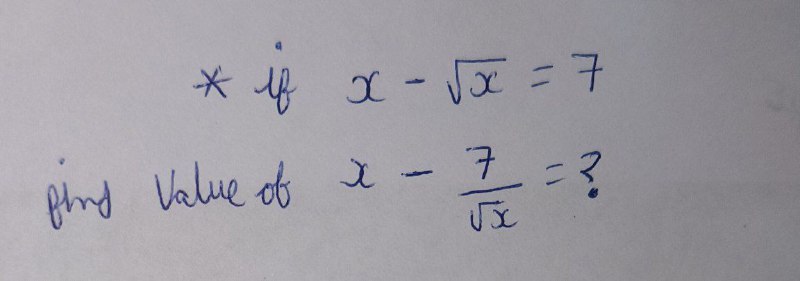 * if x - √x = 7
find Value of x - 7/√x = ?